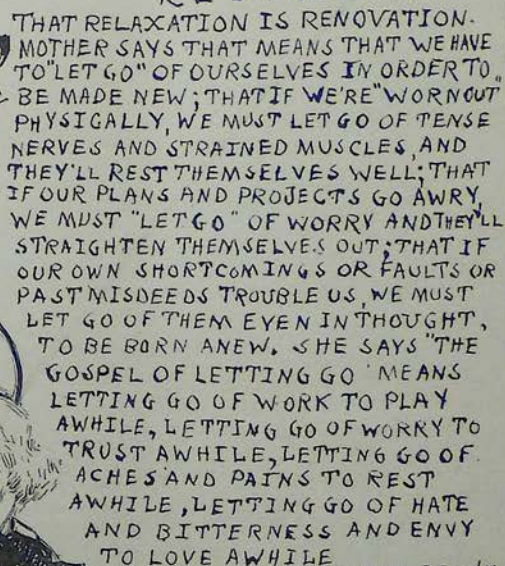 THAT RELAXATION IS RENOVATION.
MOTHER SAYS THAT MEANS THAT WE HAVE
TO "LET GO" OF OURSELVES IN ORDER TO
BE MADE NEW; THAT IF WE'RE "WORN OUT"
PHYSICALLY, WE MUST LET GO OF TENSE
NERVES AND STRAINED MUSCLES, AND
THEY'LL REST THEMSELVES WELL; THAT
IF OUR PLANS AND PROJECTS GO AWRY,
WE MUST "LET GO" OF WORRY AND THEY'LL
STRAIGHTEN THEMSELVES OUT; THAT IF
OUR OWN SHORTCOMINGS OR FAULTS OR
PAST MISDEEDS TROUBLE US, WE MUST
LET GO OF THEM EVEN IN THOUGHT,
TO BE BORN ANEW. SHE SAYS "THE
GOSPEL OF LETTING GO" MEANS
LETTING GO OF WORK TO PLAY
AWHILE, LETTING GO OF WORRY TO
TRUST AWHILE, LETTING GO OF
ACHES AND PAINS TO REST
AWHILE, LETTING GO OF HATE
AND BITTERNESS AND ENVY
TO LOVE AWHILE